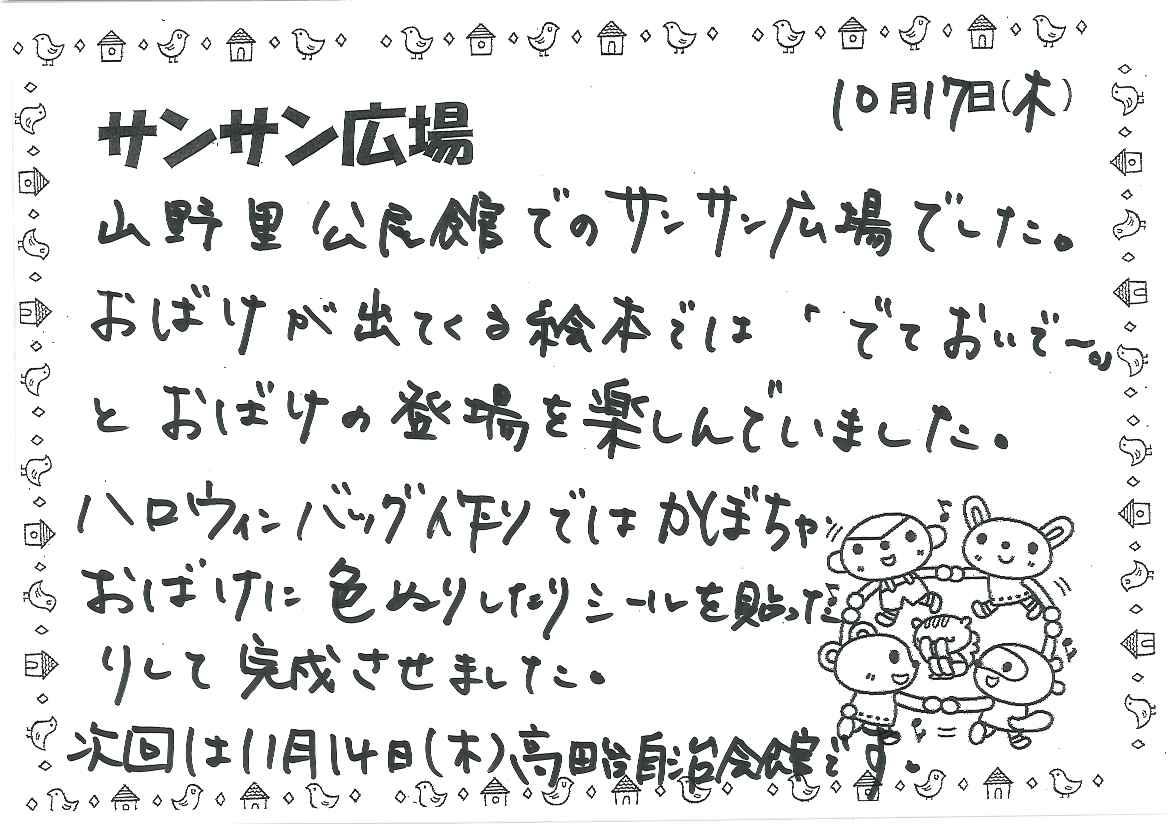 10月17日(木)
サンサン広場
山野里公民館でのサンサン広場でした。
おばけが出てくる絵本では「でておいでー。」
とおばけの登場を楽しんでいました。
ハロウィンバッグ作りではかぼちゃ、
おばけに色ぬりしたりシールを貼った
りして完成させました。
次回は11月14日(木)高田台自治会館です。